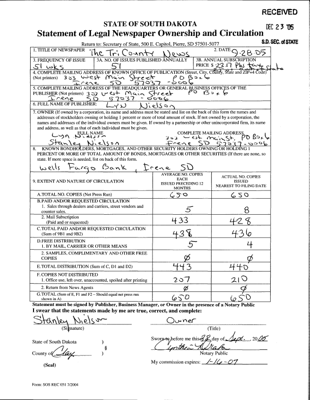 RECEIVED
DEC 23 '05
S.D. SEC. of STATE
STATE OF SOUTH DAKOTA
Statement of Legal Newspaper Ownership and Circulation
Return to: Secretary of State, 500 E. Capitol, Pierre, SD 57501-5077
1. TITLE OF NEWSPAPER The Tri County News
2. DATE 9-28-05
3. FREQUENCY OF ISSUE 51 wks
3A. NO. OF ISSUES PUBLISHED ANNUALLY 51
3B. ANNUAL SUBSCRIPTION PRICE $
4. COMPLETE MAILING ADDRESS OF KNOWN OFFICE OF PUBLICATION (Street, City, County, State and ZIP+4 Code)
(Not printers) West Main Street PO Box 6
Irene SD 57037-0046
5. COMPLETE MAILING ADDRESS OF THE HEADQUARTERS OR GENERAL BUSINESS OFFICES OF THE
PUBLISHER (Not printer) West Main Street PO Box 6
Irene SD 57037-0046
6. FULL NAME OF PUBLISHER: Lyn Nielson
7. OWNER (If owned by a corporation, its name and address must be stated and also
FULL NAME COMPLETE MAILING ADDRESS
Lyn Nielson West Main St, PO Box 6
Stanley Nielson Irene SD 57037-0046
8. KNOWN BONDHOLDERS, MORTGAGES, AND OTHER SECURITY HOLDERS OWNING OR HOLDING 1
PERCENT OR MORE OF TOTAL AMOUNT OF BONDS, MORTGAGES OR OTHER SECURITIES (If there are none, so
state. If more space is needed, list on back of this form.
Wells Fargo Bank, Irene SD
9. EXTENT AND NATURE OF CIRCULATION
AVERAGE NO. COPIES EACH ISSUED PRECEDING 12 MONTHS
ACTUAL NO. COPIES ISSUED NEAREST TO FILING DATE
A. TOTAL NO. COPIES (Net Press Run) 650 650
B. PAID AND/OR REQUESTED CIRCULATION
1. Sales through dealers and carriers, street vendors and counter sales. 5 8
2. Mail Subscription (Paid and/or requested) 433 428
C. TOTAL PAID AND/OR REQUESTED CIRCULATION (Sum of 9B1 and 9B2) 438 436
D. FREE DISTRIBUTION
1. BY MAIL, CARRIER OR OTHER MEANS 5 4
2. SAMPLES, COMPLIMENTARY AND OTHER FREE COPIES Ø Ø
E. TOTAL DISTRIBUTION (Sum of C, D1 and D2) 443 440
F. COPIES NOT DISTRIBUTED
1. Office use, left over, unaccounted, spoiled after printing 207 210
2. Return from News Agents Ø Ø
G. TOTAL (Sum of E, F1 and F2 - Should equal net press run shown in A) 650 650
Statement must be signed by Publisher, Business Manager, or Owner in the presence of a Notary Public
I swear that the statements made by me are true, correct, and complete:
Stanley Nielson Owner
(Signature) (Title)
State of South Dakota )
County of Clay ) §
(Seal)
Sworn to before me this 28 day of Sept. 2005
Notary Public
My commission expires: 1-16-09
Form: SOS REC 051 3/2004